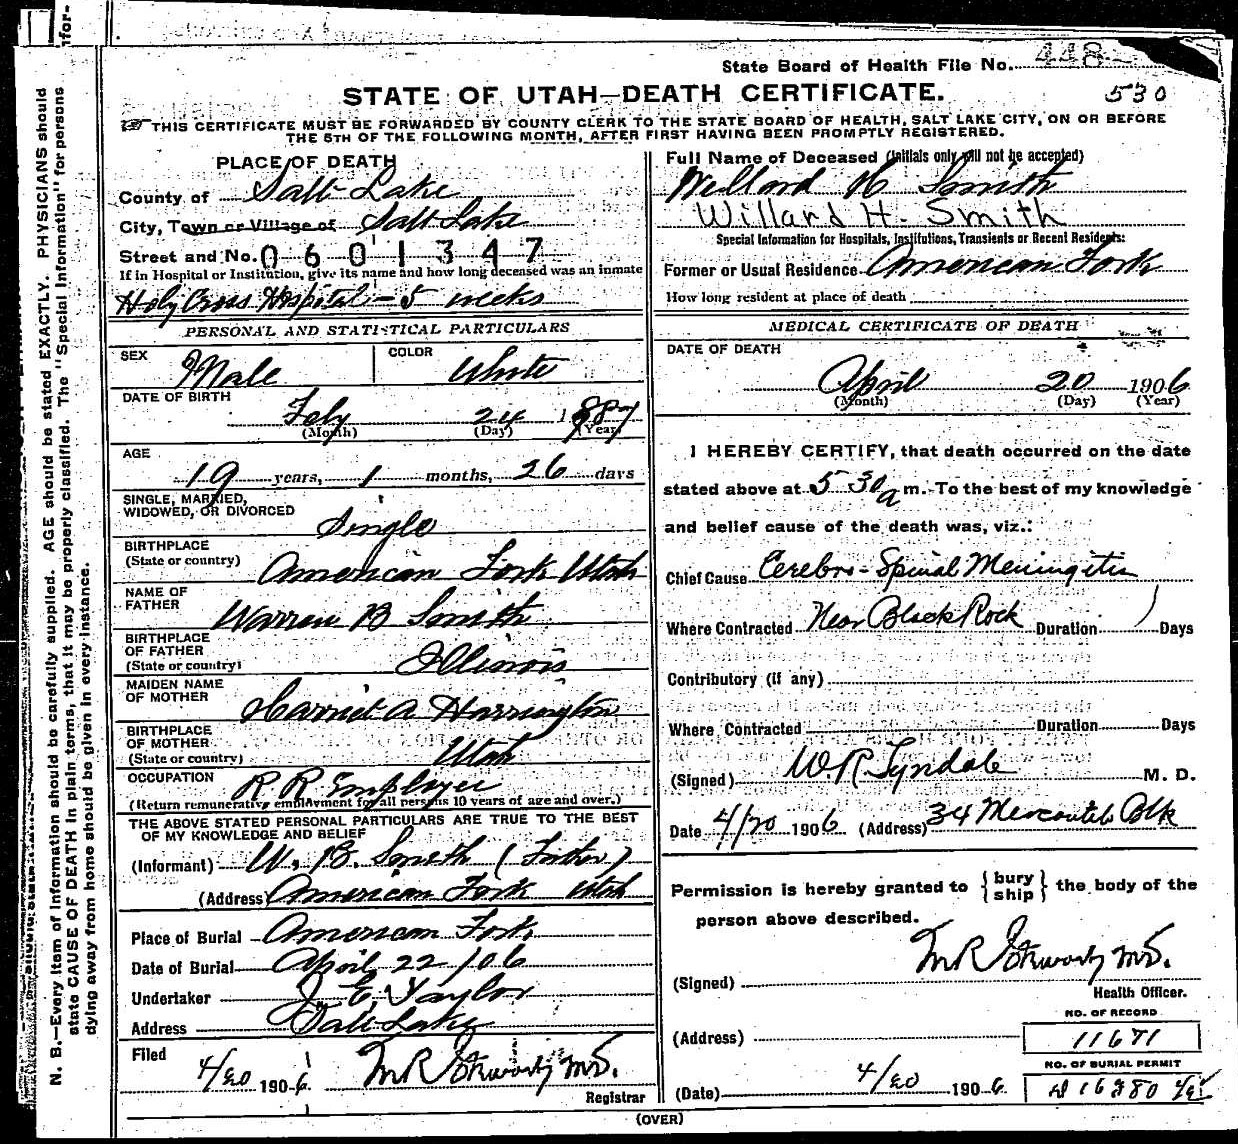 State Board of Health File No. 448
STATE OF UTAH—DEATH CERTIFICATE.
530
THIS CERTIFICATE MUST BE FORWARDED BY COUNTY CLERK TO THE STATE BOARD OF HEALTH, SALT LAKE CITY, ON OR BEFORE
THE 5TH OF THE FOLLOWING MONTH, AFTER FIRST HAVING BEEN PROMPTLY REGISTERED.
PLACE OF DEATH
County of Salt Lake
City, Town or Village of Salt Lake
Street and No. 0601347
If in Hospital or Institution, give its name and how long deceased was an inmate
Holy Cross Hospital - 5 weeks
PERSONAL AND STATISTICAL PARTICULARS
SEX Male
COLOR White
DATE OF BIRTH
Feby 24 1887
(Month) (Day) (Year)
AGE
19 years, 1 months, 26 days
SINGLE, MARRIED,
WIDOWED, OR DIVORCED Single
BIRTHPLACE
(State or country) American Fork Utah
NAME OF
FATHER Warren B Smith
BIRTHPLACE
OF FATHER
(State or country) Illinois
MAIDEN NAME
OF MOTHER Harriet A Harrington
BIRTHPLACE
OF MOTHER
(State or country) Utah
OCCUPATION R R Employee
(Return remunerative employment for all persons 10 years of age and over.)
THE ABOVE STATED PERSONAL PARTICULARS ARE TRUE TO THE BEST
OF MY KNOWLEDGE AND BELIEF
(Informant) W. B. Smith (Father)
(Address) American Fork Utah
Place of Burial American Fork
Date of Burial April 22/06
Undertaker J. E. Taylor
Address Salt Lake
Filed
4/20 1906 M R Stewart, M.D.
Registrar
Full Name of Deceased (Initials only will not be accepted)
Willard H Smith
Willard H. Smith
Special Information for Hospitals, Institutions, Transients or Recent Residents:
Former or Usual Residence American Fork
How long resident at place of death
MEDICAL CERTIFICATE OF DEATH
DATE OF DEATH
April 20 1906
(Month) (Day) (Year)
I HEREBY CERTIFY, that death occurred on the date
stated above at 5 30 a m. To the best of my knowledge
and belief cause of the death was, viz.:
Chief Cause Cerebro-Spinal Meningitis
Where Contracted Near Black Rock Duration Days
Contributory (if any)
Where Contracted Duration Days
(Signed) W R Tyndale M. D.
Date 4/20 1906 (Address) 34 Mercantile Blk
Permission is hereby granted to {bury
ship} the body of the
person above described.
(Signed) M R Stewart, M.D.
Health Officer.
NO. OF RECORD
(Address) 11671
NO. OF BURIAL PERMIT
(Date) 4/20 1906 16380
(OVER)
N. B.—Every item of information should be carefully supplied. AGE should be stated EXACTLY. PHYSICIANS should
state CAUSE OF DEATH in plain terms, that it may be properly classified. The "Special Information" for persons
dying away from home should be given in every instance.